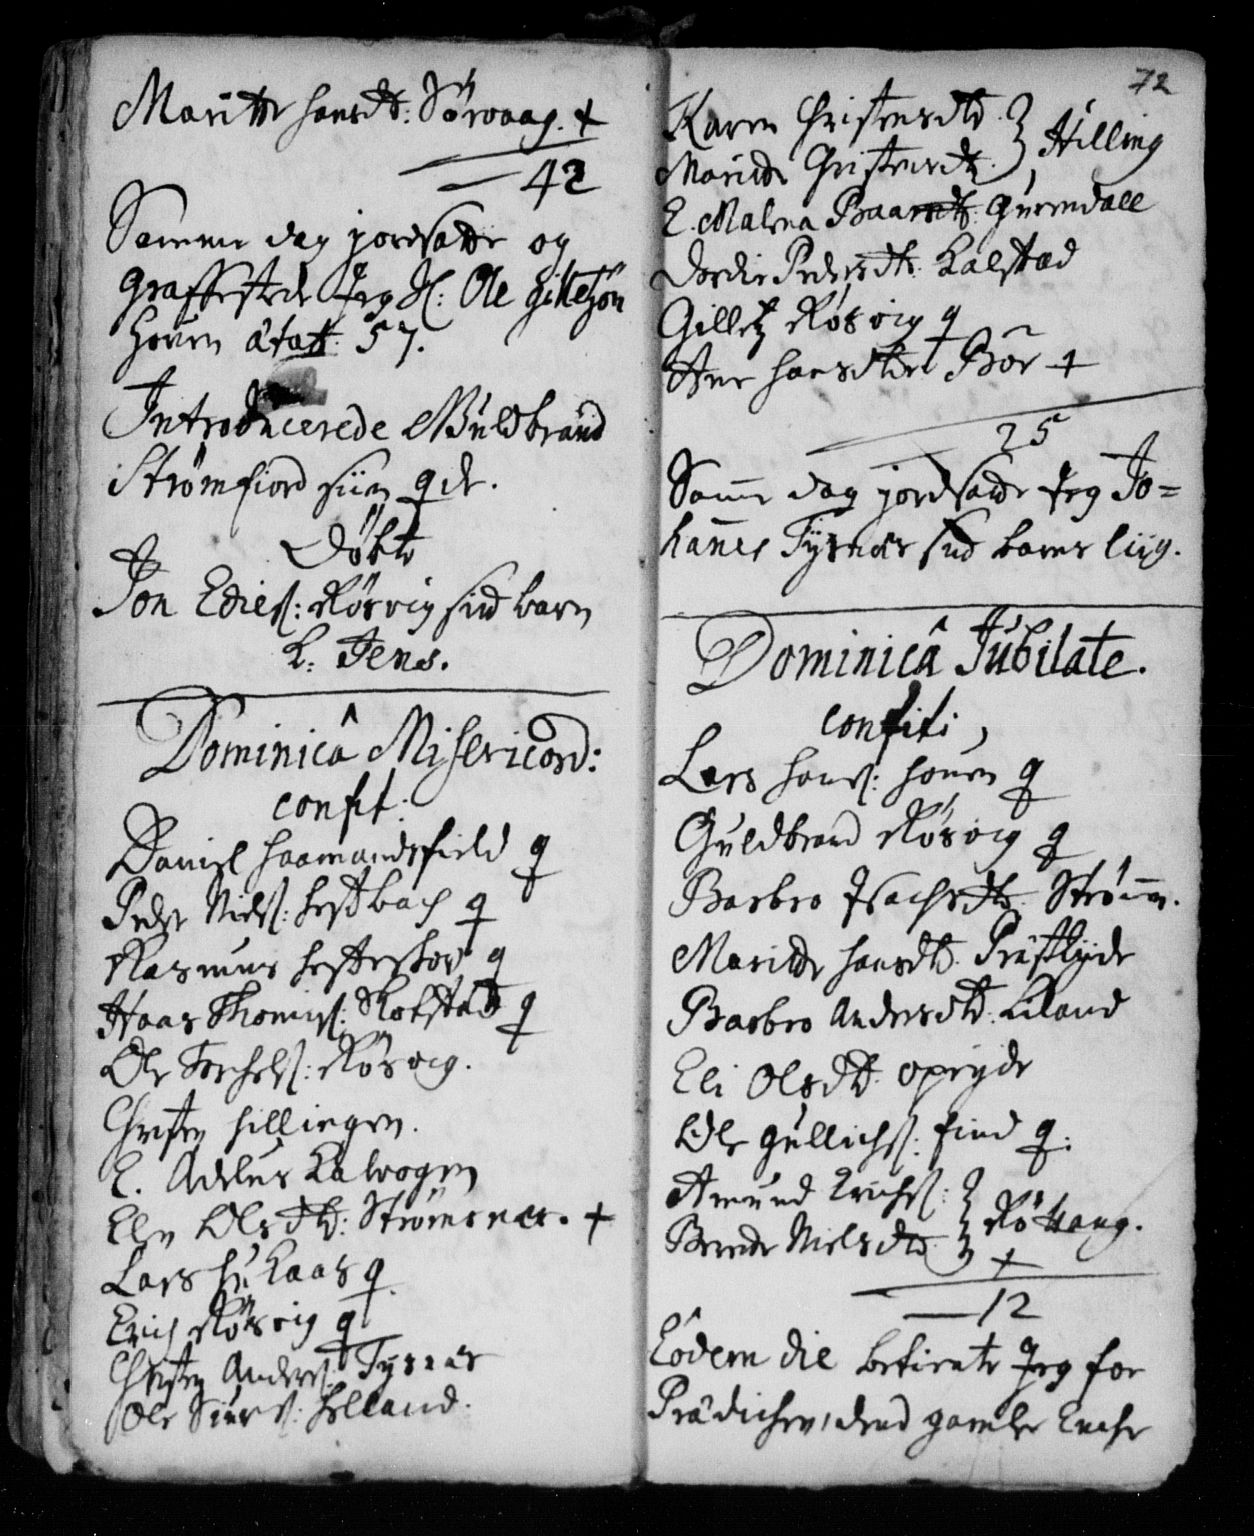 Maritte Hansdt: Sörvaag. +
42
Samme dag jordsatte og
graffestede Jeg Sl: Ole Gilletzön
Hoven ætat: 57.
Introducerede Guldbrand
Strømfiord siin qde.
Döbte
Jon Edies: Rösvig sid barn
k: Jens.
Dominicâ Misericord:
confit:
Daniel Haamandsfield q
Peder Niels: Hestbach q
Rasmus Hesteskov q
Haas Thomes: Skotstad q
Ole Torchels: Rösvig.
Christen Hillingen.
E. Adelus Kalvogen
Elen Olsdtr: Strömsnes. +
Lars Kaas q
Erich Rösvig q
Christen Anders: Tysnes
Ole Siurs: Helland.
72
Karen Christensdtr } Hilling
Maritte Christensdtr
E. Malena Baarsdtr: Gurendall
Dordie Pedersdtr: Kalstad
Gilletz Rösvig q
Ane Hansdtter Bör +
25
Samme dag jordsatte Jeg Jo=
hannes Tysnes sid barns liig.
Dominicâ Jubilate.
confiti,
Lars Hans: Hoven q
Guldbrand Rösvig q
Barbro Isachsdtr: Ström.
Maritte Hansdtr. Præsthyde
Barbro Andersdtr: Liland
Eli Olsdtr: Opeyde
Ole Gullichs: Find q.
Amund Erichs: } Röttang.
Berete Nielsdtr +
12
Eodem die betiente Jeg for
Prædichen, dend gamle Enche